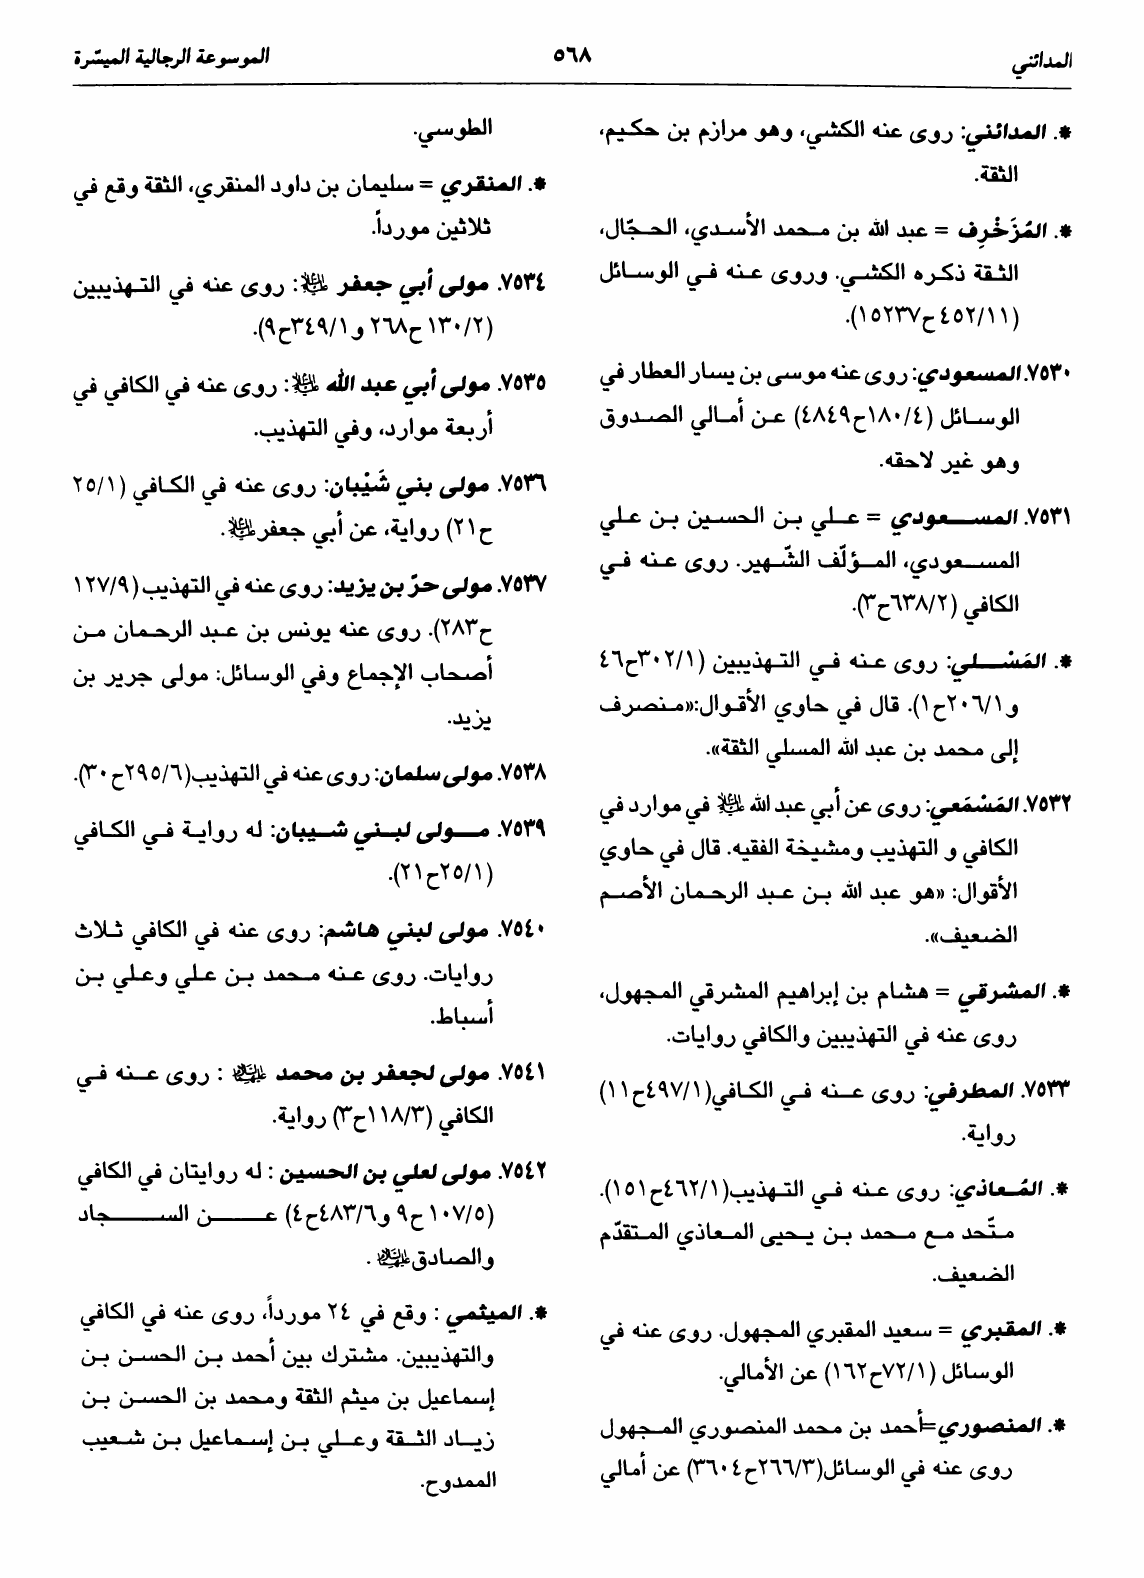 المدائني
٥٦٨
الموسوعة الرجالية الميسّرة
*. المدائني: روى عنه الكشي، وهو مرازم بن حكيم،
الثقة.
*. المُزَخْرِف = عبد الله بن محمد الأسدي، الحجّال،
الثقة ذكره الكشي. وروى عنه في الوسائل
(٤٥٢/١١ ح١٥٢٣٧).
٧٥٣٠. المسعودي: روى عنه موسى بن يسار العطار في
الوسائل (١٨٠/٤ح٤٨٤٩) عن أمالي الصدوق
وهو غير لاحقه.
٧٥٣١. المسعودي = علي بن الحسين بن علي
المسعودي، المؤلّف الشّهير. روى عنه في
الكافي (٦٣٨/٢ح٣).
*. المَسْلي: روى عنه في التهذيبين (٣٠٢/١ح٤٦
و٢٠٦/١ح١). قال في حاوي الأقوال:«منصرف
إلى محمد بن عبد الله المسلي الثقة».
٧٥٣٢. المَسْمَعي: روى عن أبي عبد الله عليه السلام في موارد في
الكافي و التهذيب ومشيخة الفقيه. قال في حاوي
الأقوال: «هو عبد الله بن عبد الرحمان الأصم
الضعيف».
*. المشرقي = هشام بن إبراهيم المشرقي المجهول،
روى عنه في التهذيبين والكافي روايات.
٧٥٣٣. المطرفي: روى عنه في الكافي(٤٩٧/١ح١١)
رواية.
*. المُعاذي: روى عنه في التهذيب(٤٦٢/١ح١٥١).
متّحد مع محمد بن يحيى المعاذي المتقدّم
الضعيف.
*. المقبري = سعيد المقبري المجهول. روى عنه في
الوسائل (٧٢/١ح١٦٢) عن الأمالي.
*. المنصوري=أحمد بن محمد المنصوري المجهول
روى عنه في الوسائل(٢٦٦/٣ح٣٦٠٤) عن أمالي
الطوسي.
*. المنقري = سليمان بن داود المنقري، الثقة وقع في
ثلاثين مورداً.
٧٥٣٤. مولى أبي جعفر عليه السلام: روى عنه في التهذيبين
(١٣٠/٢ ح٢٦٨ و٣٤٩/١ح٩).
٧٥٣٥. مولى أبي عبد الله عليه السلام: روى عنه في الكافي في
أربعة موارد، وفي التهذيب.
٧٥٣٦. مولى بني شَيْبان: روى عنه في الكافي (٢٥/١
ح٢١) رواية، عن أبي جعفر عليه السلام.
٧٥٣٧. مولى حرّ بن يزيد: روى عنه في التهذيب (١٢٧/٩
ح٢٨٣). روى عنه يونس بن عبد الرحمان من
أصحاب الإجماع وفي الوسائل: مولى جرير بن
يزيد.
٧٥٣٨. مولى سلمان: روى عنه في التهذيب(٢٩٥/٦ح٣٠).
٧٥٣٩. مولى لبني شيبان: له رواية في الكافي
(٢٥/١ح٢١).
٧٥٤٠. مولى لبني هاشم: روى عنه في الكافي ثلاث
روايات. روى عنه محمد بن علي وعلي بن
أسباط.
٧٥٤١. مولى لجعفر بن محمد عليهما السلام : روى عنه في
الكافي (١١٨/٣ح٣) رواية.
٧٥٤٢. مولى لعلي بن الحسين : له روايتان في الكافي
(١٠٧/٥ح٩ و٤٨٣/٦ح٤) عن السجاد
والصادق عليهما السلام .
*. الميثمي : وقع في ٢٤ مورداً، روى عنه في الكافي
والتهذيبين. مشترك بين أحمد بن الحسن بن
إسماعيل بن ميثم الثقة ومحمد بن الحسن بن
زياد الثقة وعلي بن إسماعيل بن شعيب
الممدوح.